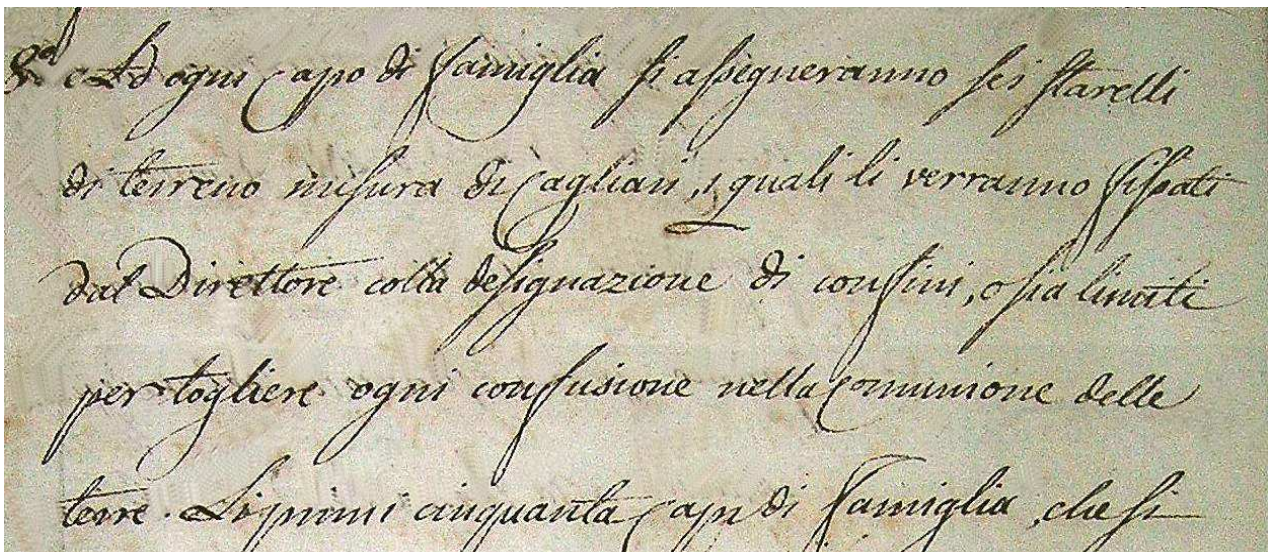 8.a Ad ogni Capo di famiglia si assegneranno sei starelli
di terreno misura di Cagliari, i quali li verranno fissati
dal Direttore colla designazione di confini, o sia limiti
per togliere ogni confusione nella Comunione delle
terre. Li primi cinquanta Capi di famiglia, che si